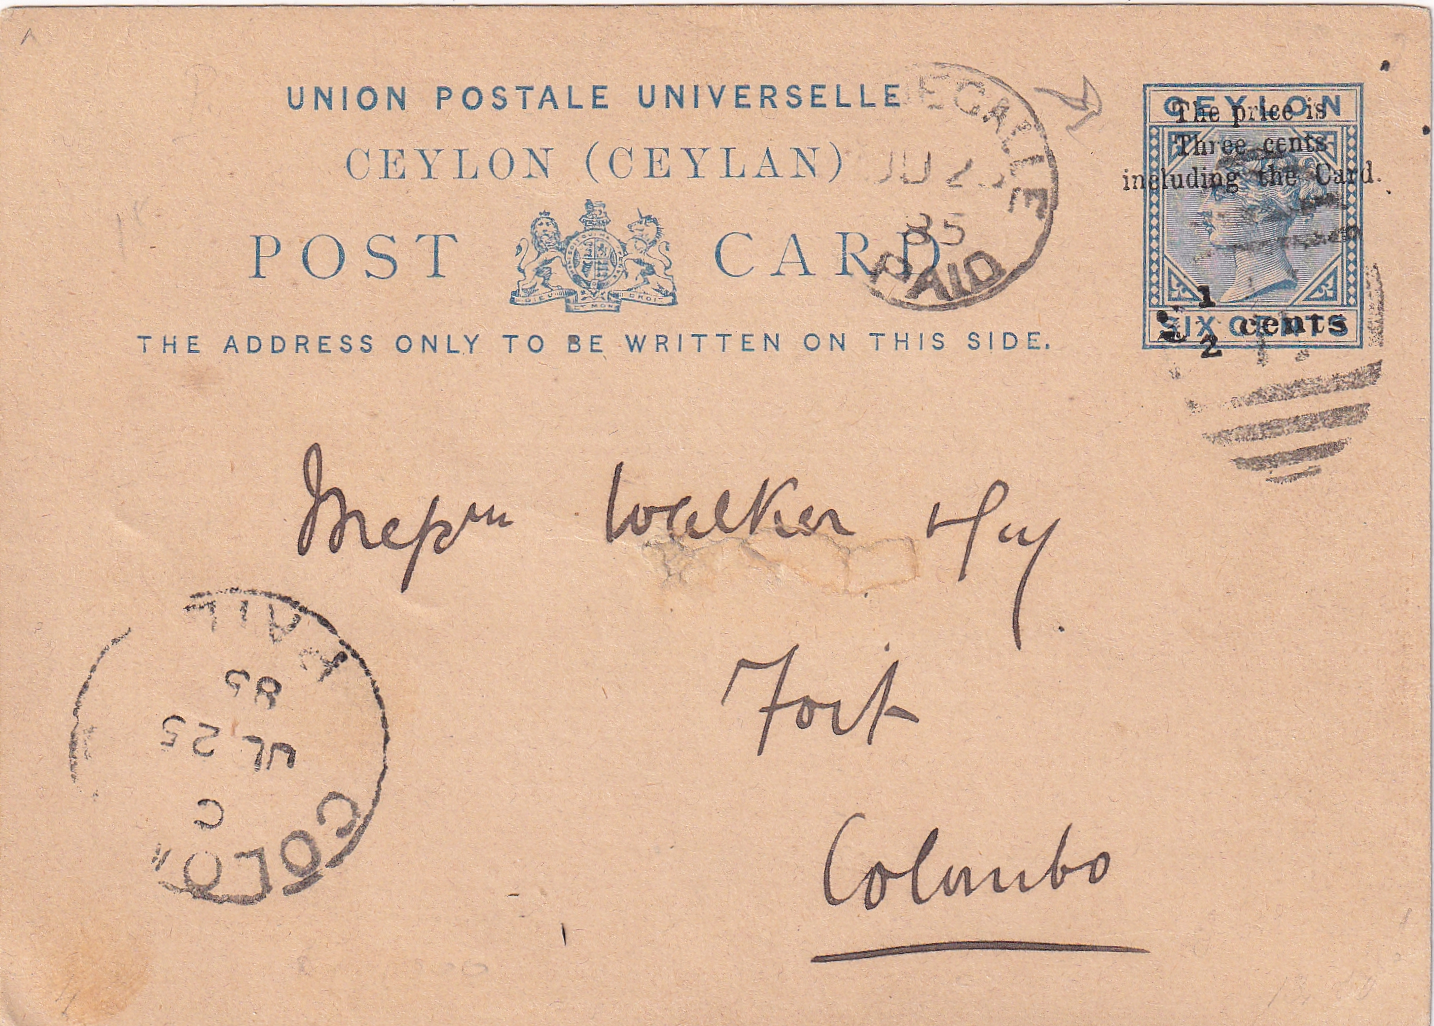 UNION POSTALE UNIVERSELLE
CEYLON (CEYLAN)
POST CARD
THE ADDRESS ONLY TO BE WRITTEN ON THIS SIDE.
EGALLE
85
PAID
CEYLON
The price is
Three cents
including the Card.
SIX CENTS
1
2 cents
Messrs Walker
Fort
Colombo
PAI
85
UL 25
C
COLO